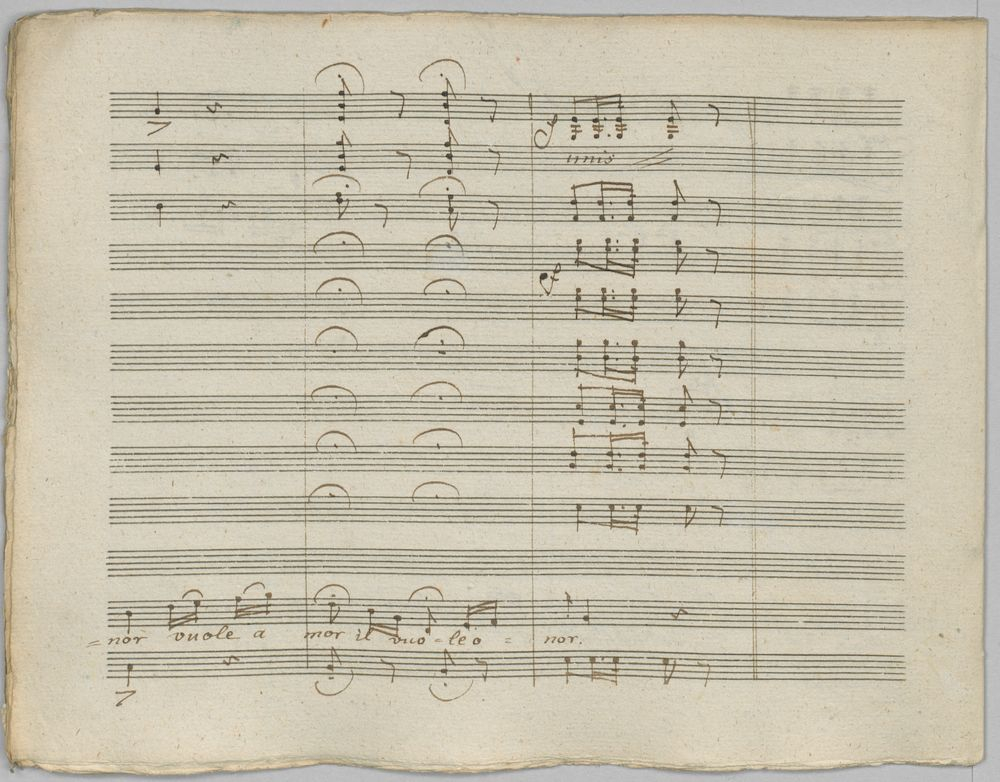 f
unis
f
=nor vuole a mor il vuo=leo=nor.